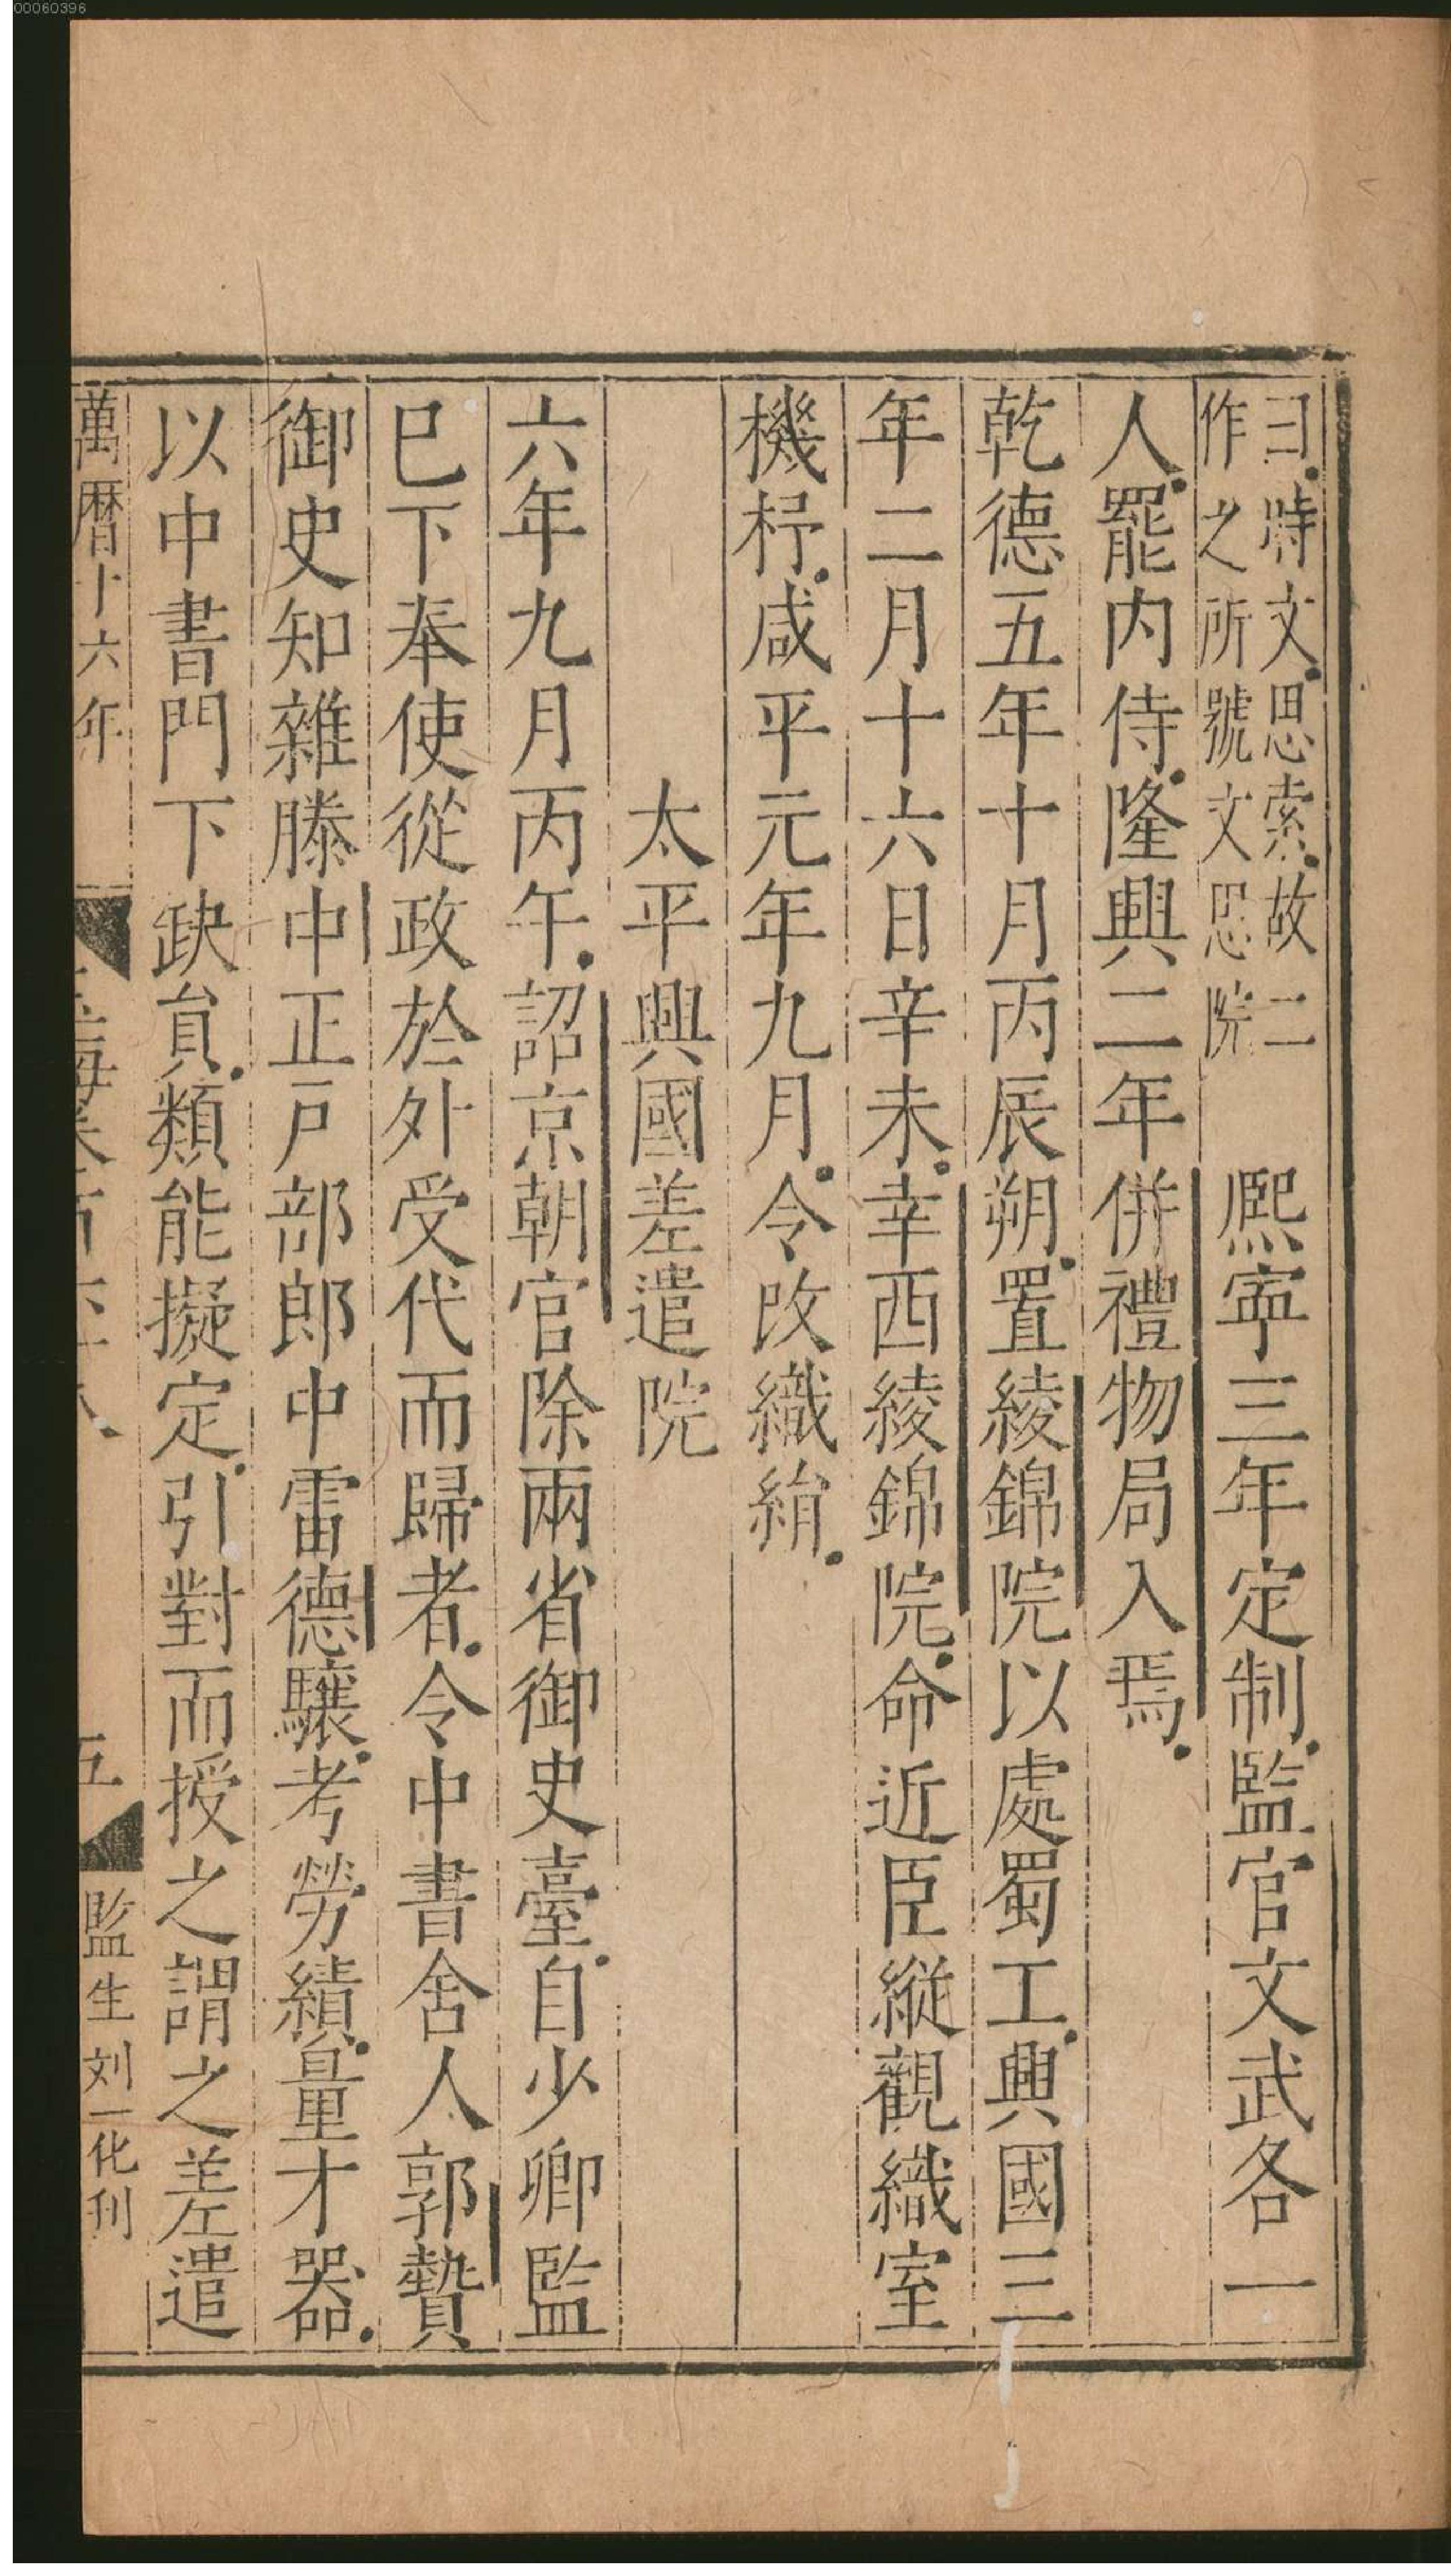 00060396
曰時文思索故二
作之所號文思院
熙寧三年定制監官文武各一
人罷内侍隆興二年併禮物局入焉
乾德五年十月丙辰朔置綾錦院以處蜀工興國三
年二月十六日辛未幸西綾錦院命近臣縱觀織室
機杼咸平元年九月令改織絹
太平興國差遣院
六年九月丙午詔京朝官除兩省御史臺自少卿監
巳下奉使從政於外受代而歸者令中書舍人郭贄
御史知雜滕中正戸部郎中雷德驤考勞績量才器
以中書門下缺貟類能擬定引對而授之謂之差遣
萬曆十六年
五
監生刘一化刊